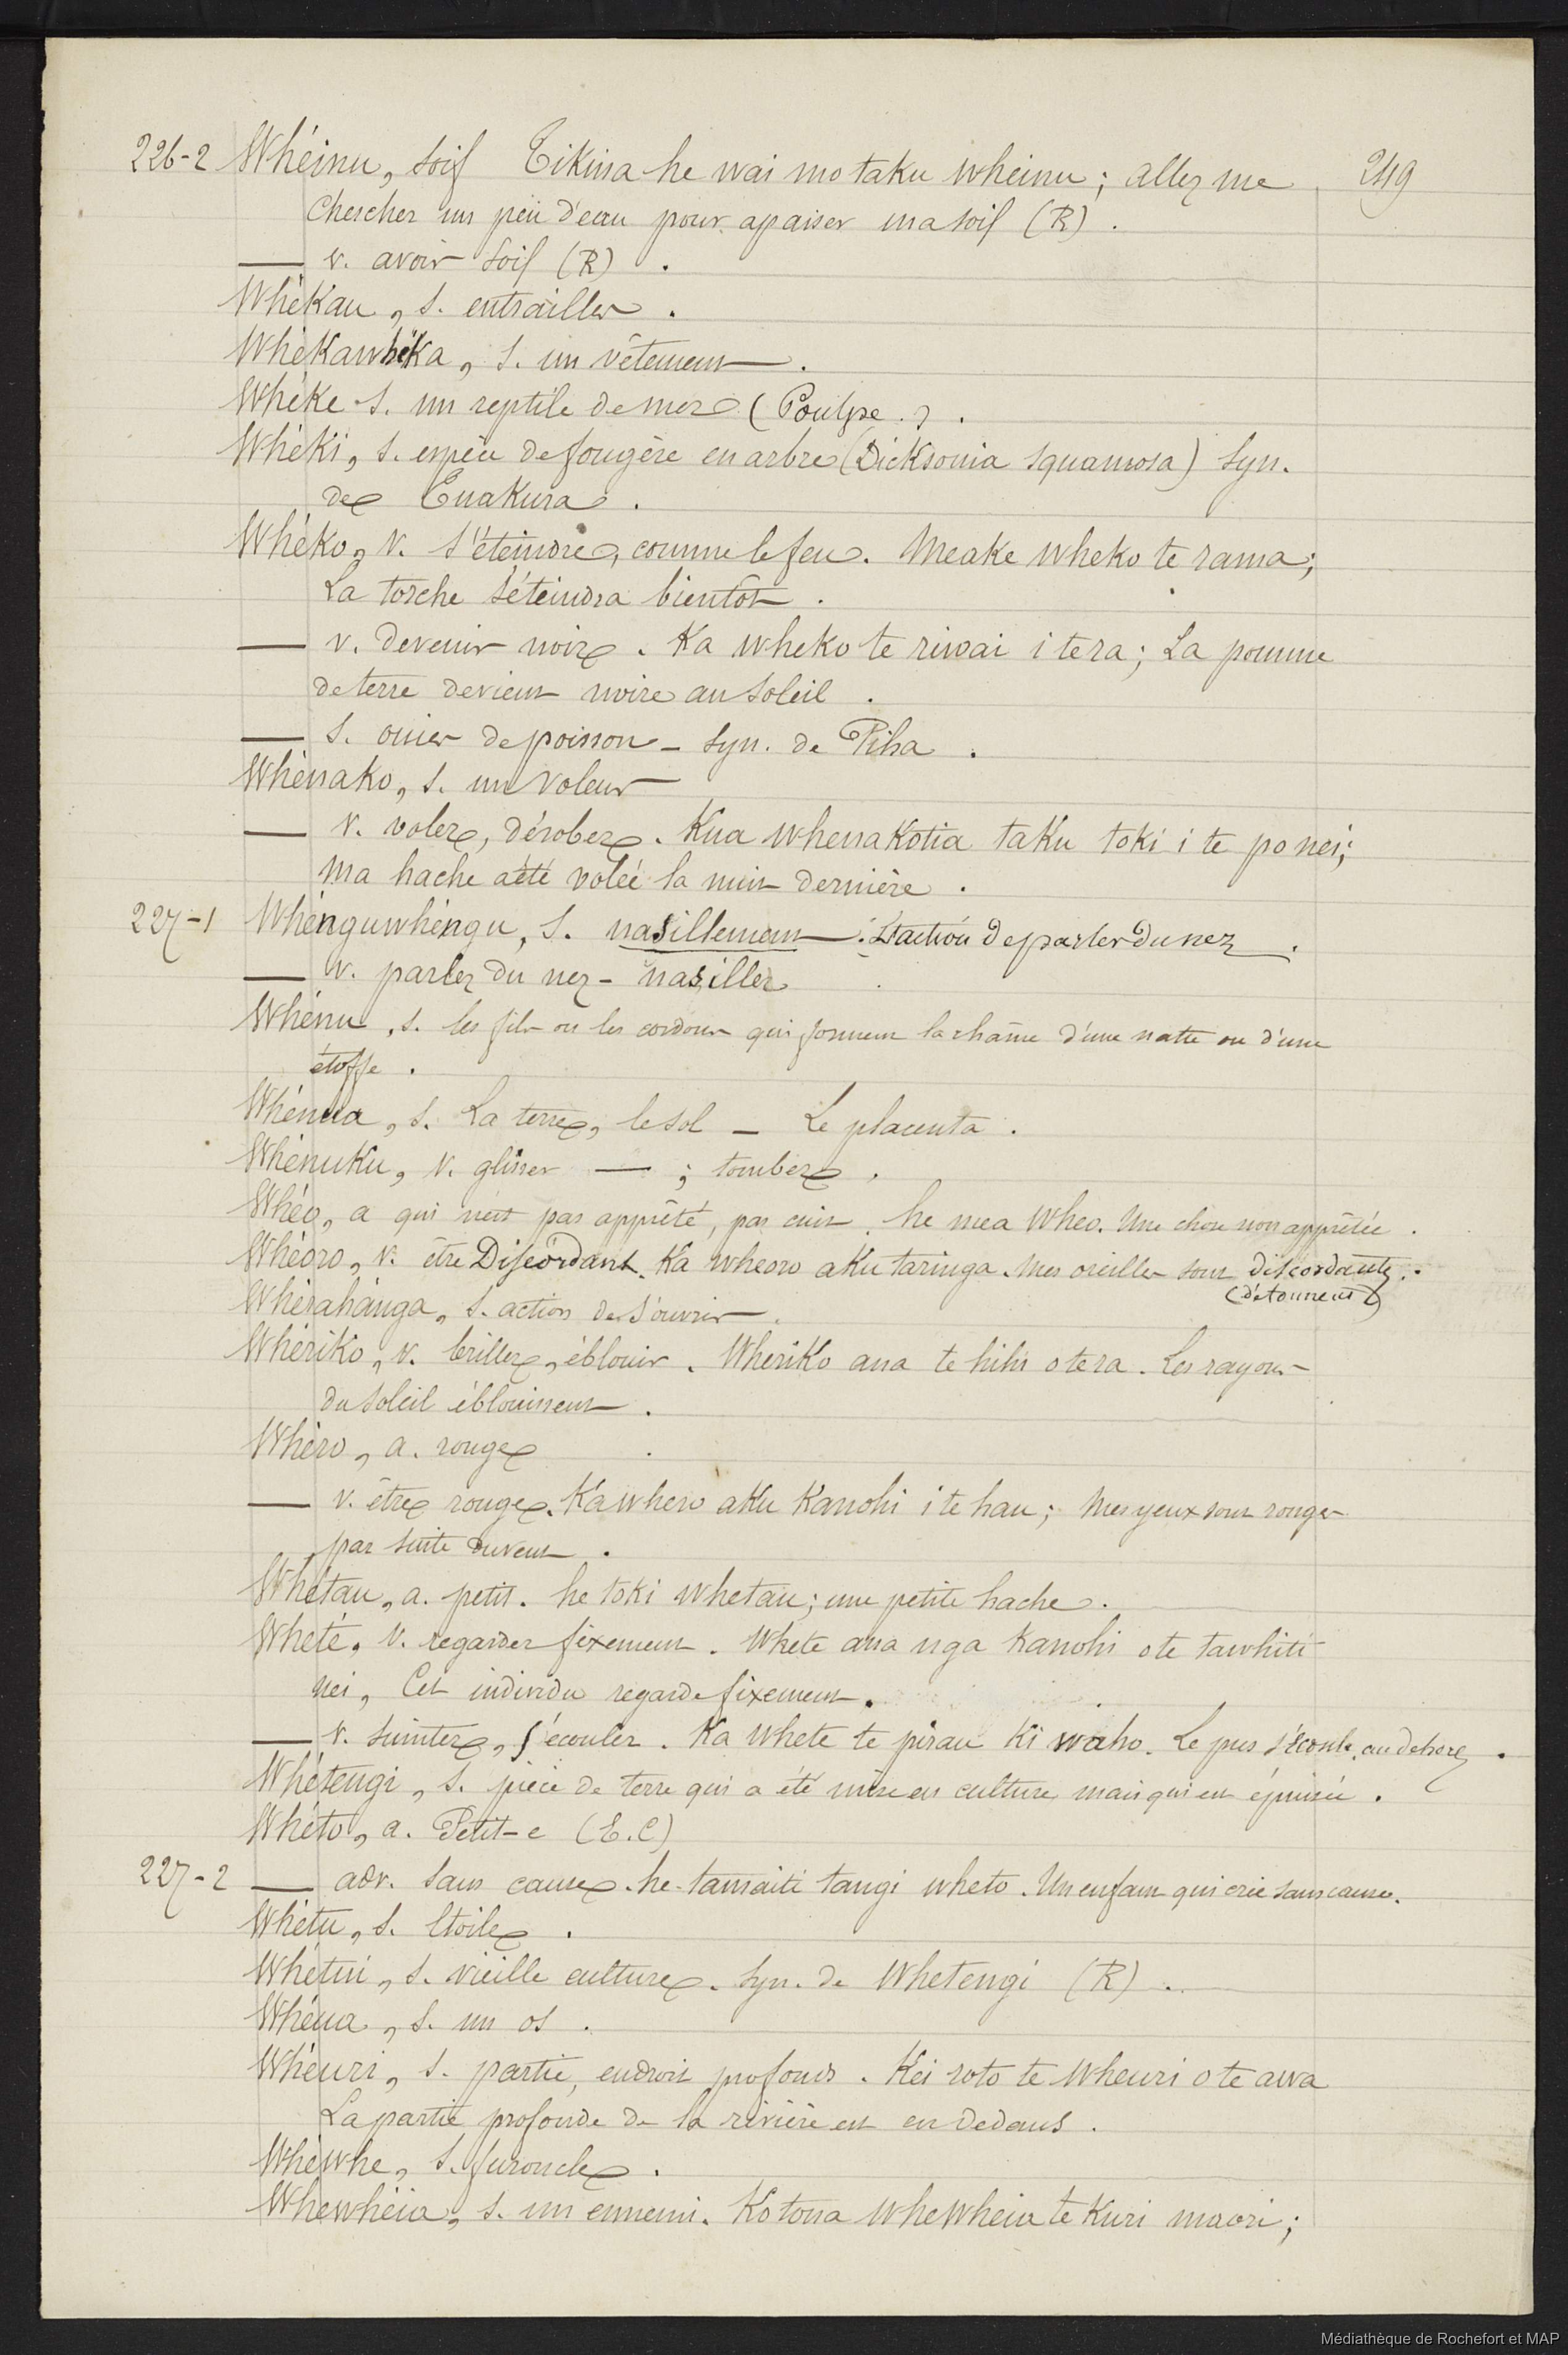 226-2 Whéinu, soif Tikina he wai mo taku wheinu; allez me 249
chercher un peu d'eau pour apaiser ma soif (R).
— v. avoir soif (R).
Whékau, s. entrailles.
Whékawhéka, s. un vêtement.
Whéke s. un reptile de mer (Poulpe.).
Whéki, s. espèce de fougère en arbre (Dicksonia squamosa) Syn.
de Tuakura.
Whéko, v. s'éteindre, comme le feu. Meake wheko te rama;
La torche s'éteindra bientôt.
— v. devenir noir. Ka wheko te riwai i te ra; La pomme
de terre devient noire au soleil.
— s. ouies de poisson - Syn. de Piha.
Whénako, s. un voleur
— v. voler, dérober. Kua whenakotia taku toki i te po nei;
Ma hache a été volée la nuit dernière.
227-1 Whénguwhéngu, s. nasillement. L'action de parler du nez.
— v. parler du nez - nasiller
Whénu, s. les fils ou les cordons qui forment la chaîne d'une natte ou d'une
étoffe.
Whénua, s. La terre, le sol — Le placenta.
Whénuku, v. glisser — ; tomber.
Whéo, a qui n'est pas apprêté, pas cuit. he mea wheo. Une chose non apprêtée.
Whéoro, v. être Discordant. Ka wheoro aku taringa. Mes oreilles sont discordantes.
(détonnent)
Whérahánga, s. action de s'ouvrir.
Whériko, v. briller, éblouir. Wheriko ana te hihi o te ra. Les rayons
du soleil éblouissent.
Whéro, a. rouge
— v. être rouge. Ka whero aku kanohi i te hau; Mes yeux sont rouges
par suite du vent.
Whétau, a. petit. he toki whetau; une petite hache.
Wheté, v. regarder fixement. Whete ana nga kanohi o te tawhiti
nei, Cet individu regarde fixement.
— v. suinter, s'écouler. Ka whete te pirau ki waho. Le pus s'écoule au dehors.
Whétengi, s. pièce de terre qui a été mise en culture mais qui est épuisée.
Whéto, a. Petit-e (E.C)
227-2 — adv. sans cause. he tamaiti tangi wheto. Un enfant qui crie sans cause.
Whétu, s. étoile.
Whétui, s. vieille culture. Syn. de Whetengi (R).
Whéua, s. un os.
Whéuri, s. partie, endroit profond. Kei roto te wheuri o te awa
La partie profonde de la rivière est en dedans.
Whéwhe, s. furoncle.
Whewhéia, s. un ennemi. Ko tona whewheia te kuri maori;
Médiathèque de Rochefort et MAP